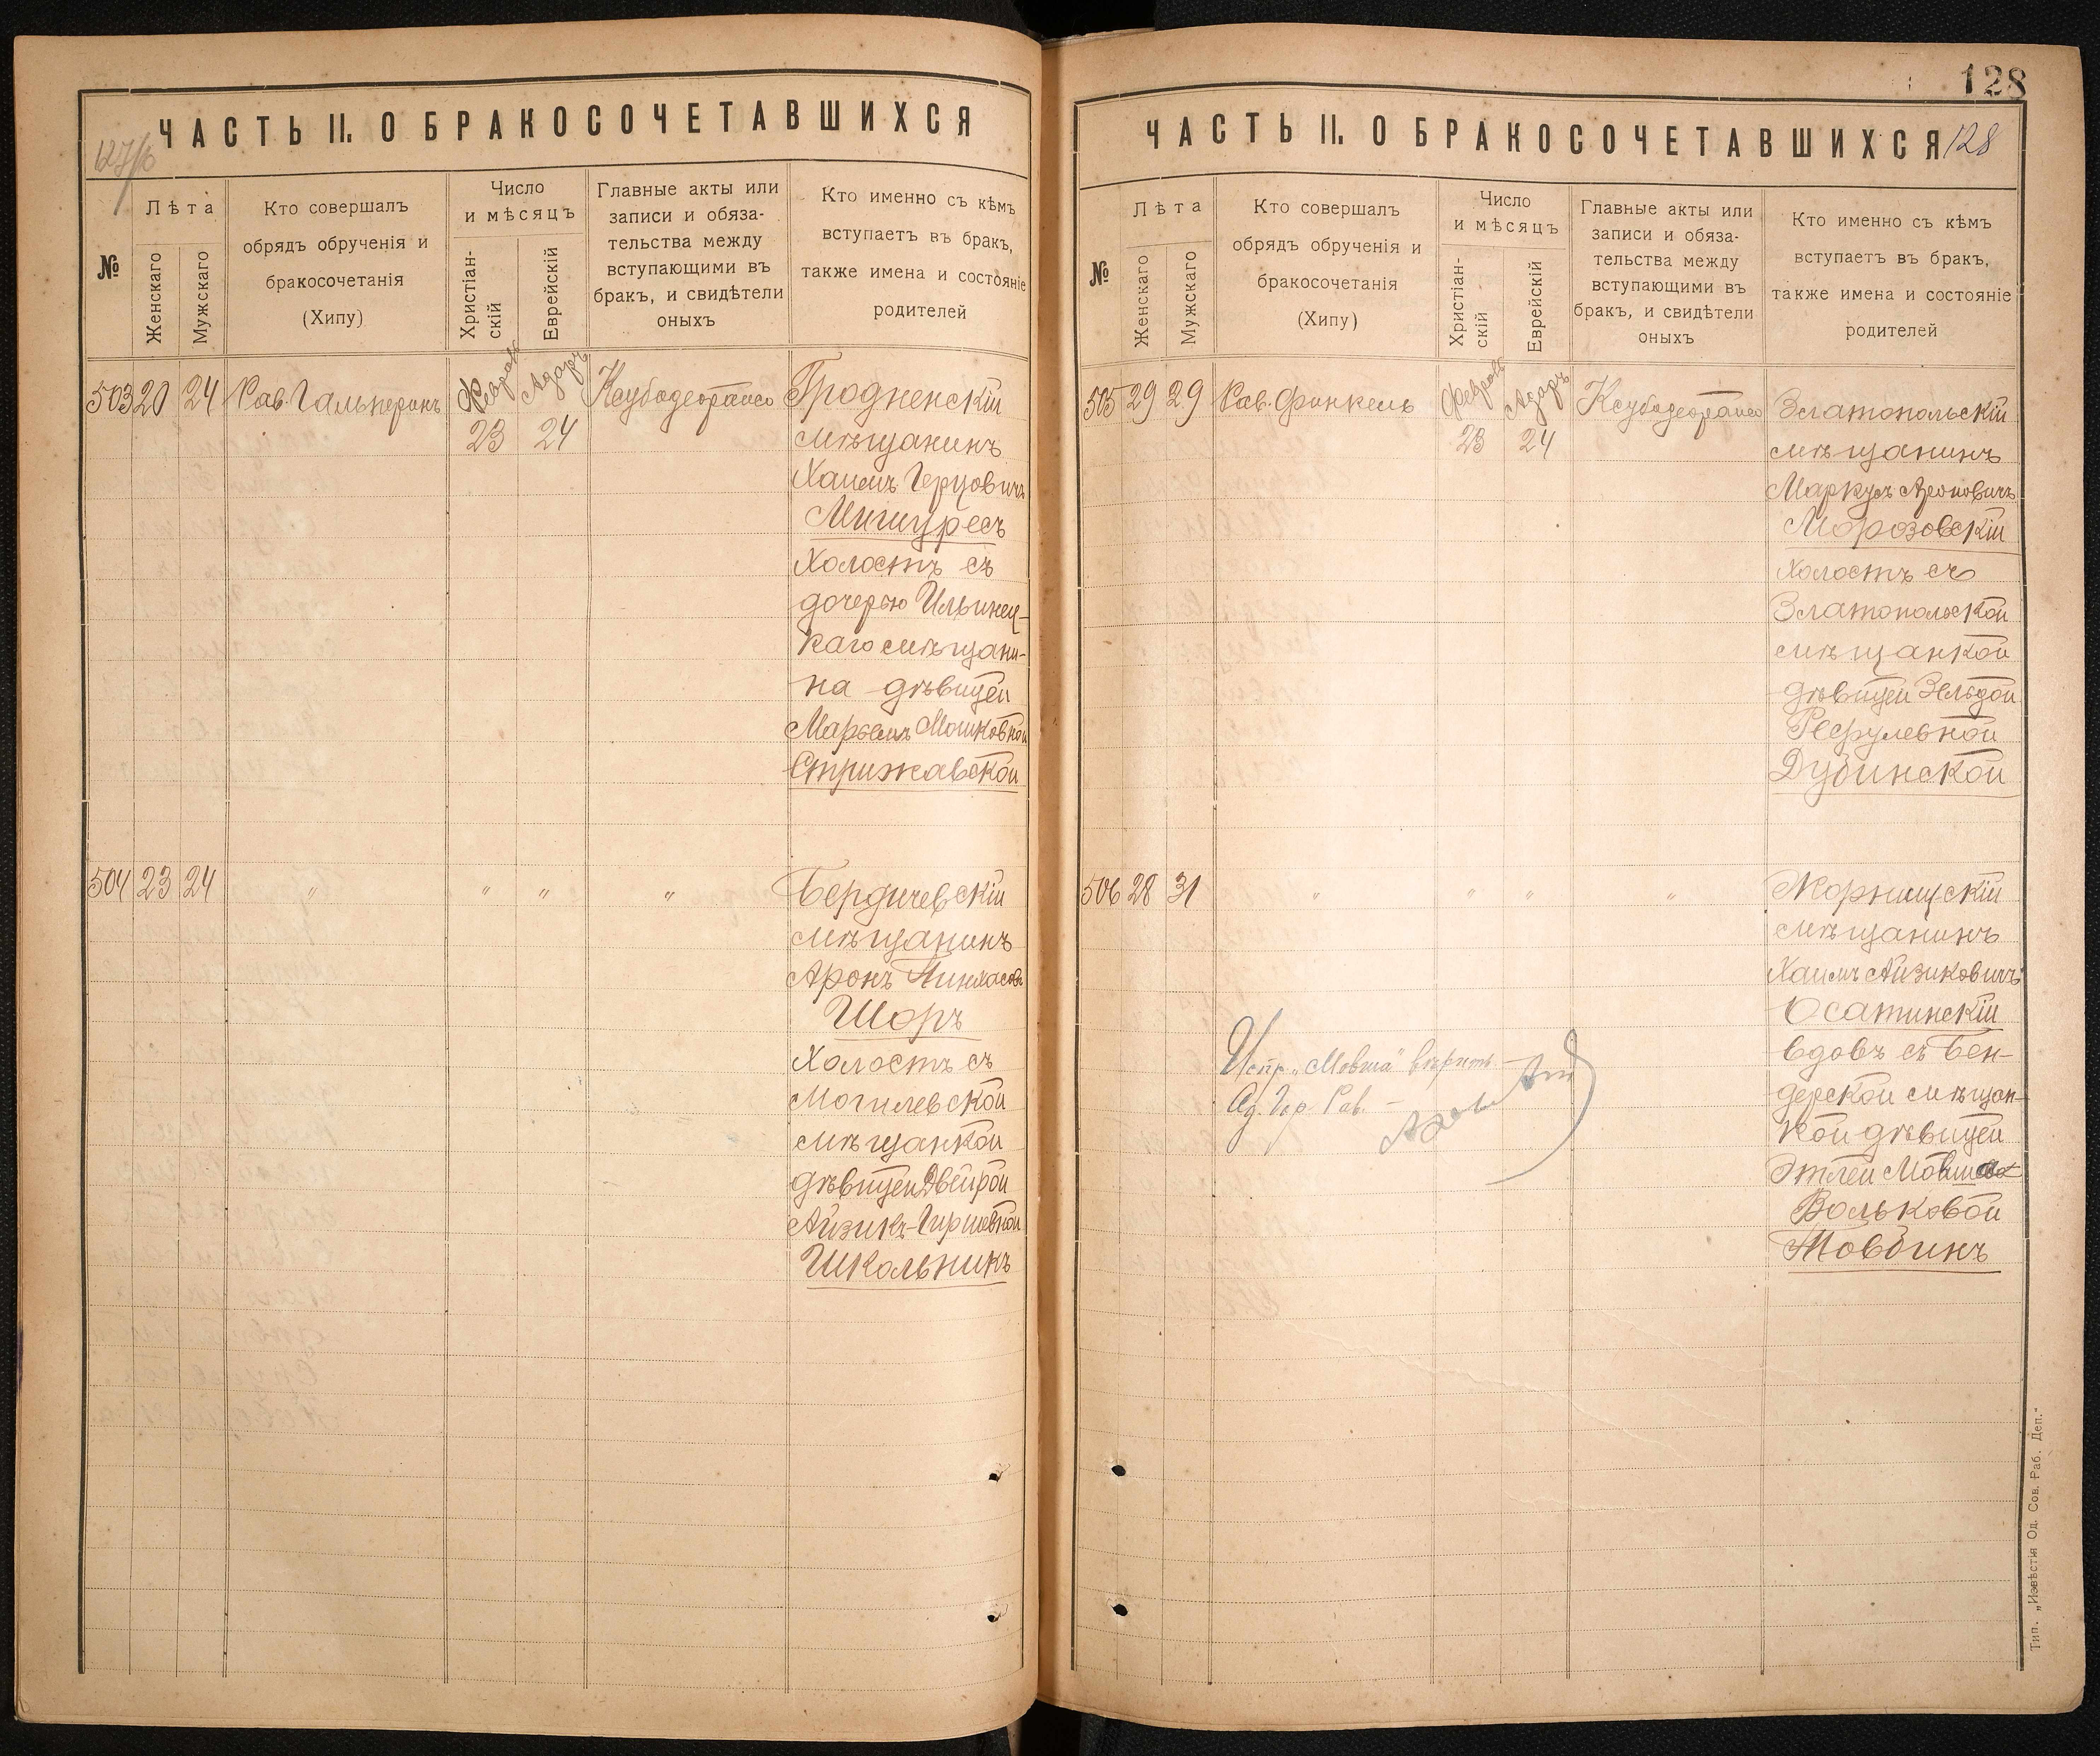 ЧАСТЬ II. О БРАКОСОЧЕТАВШИХСЯ
№
Лѣта
Женскаго
Мужскаго
Кто совершалъ
обрядъ обрученія и
бракосочетанія
(Хипу)
Число
и мѣсяцъ
Христіан-
скій
Еврейскій
Главные акты или
записи и обяза-
тельства между
вступающими въ
бракъ, и свидѣтели
оныхъ
Кто именно съ кѣмъ
вступаетъ въ бракъ,
также имена и состояніе
родителей
503 20 24 Рав. Гальперинъ
Февраль
23
Адаръ
24
Гродненскій
мѣщанинъ
Хаимъ Герцовичъ
Мишуресъ
Холостъ съ
дочерью Ильинец-
каго мѣщани-
на дѣвицей
Марьемъ Мошковной
Стрижавской
504 23 24 " " " "
Бердичевскій
мѣщанинъ
Аронъ Пинхасов
Шоръ
Холостъ съ
Могилевской
мѣщанкой
дѣвицей Двейрой
Айзикъ-Гиршовной
Школьникъ
128
ЧАСТЬ II. О БРАКОСОЧЕТАВШИХСЯ 128
№
Лѣта
Женскаго
Мужскаго
Кто совершалъ
обрядъ обрученія и
бракосочетанія
(Хипу)
Число
и мѣсяцъ
Христіан-
скій
Еврейскій
Главные акты или
записи и обяза-
тельства между
вступающими въ
бракъ, и свидѣтели
оныхъ
Кто именно съ кѣмъ
вступаетъ въ бракъ,
также имена и состояніе
родителей
505 29 29 Рав. Финкель
Февраль
23
Адаръ
24
Златопольскій
мѣщанинъ
Маркусъ Ароновичъ
Морозовскій
Холостъ съ
Златопольской
мѣщанкой
дѣвицей Зельдой
Рефулевной
Дубинской
506 28 31 " " " "
мѣщанинъ
Хаимъ Айзиковичъ
Осатинскій
вдовъ съ Бен-
дерской мѣщан-
кой дѣвицей
Этлей Мовша
Вольковой
Товбинъ
Испр. „Мовша" вѣрить
Од. Гор. Рав.
Тип. „Извѣстія Од. Сов. Раб. Деп."